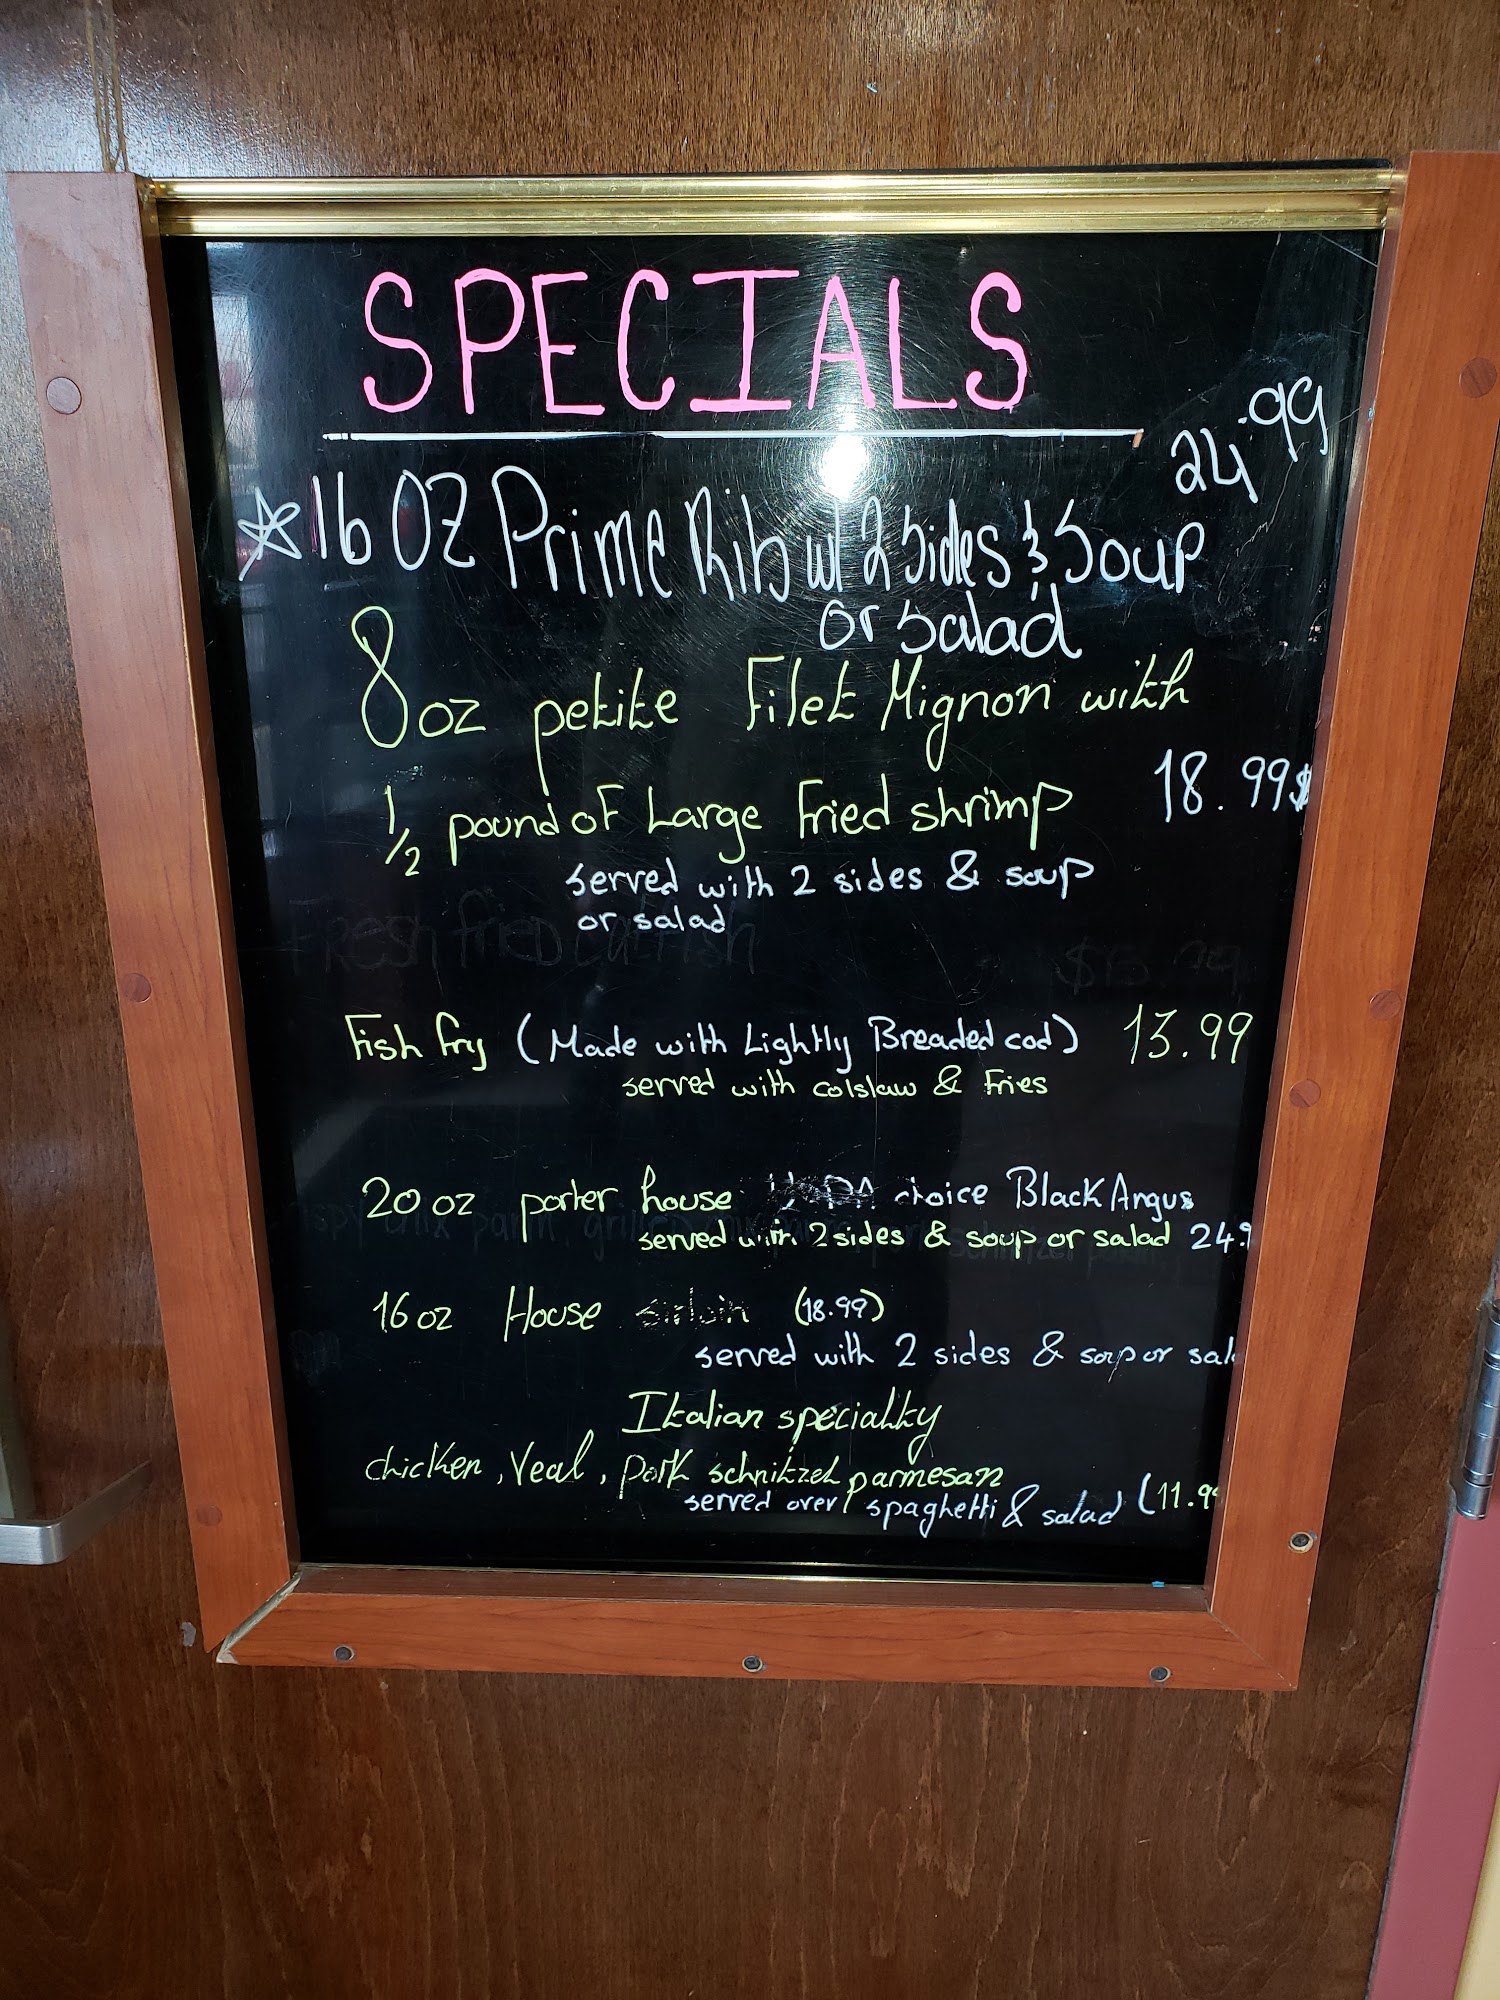 SPECIALS
24.99
☆16 OZ Prime Rib w/ 2 sides & Soup
or salad
8 oz petite Filet Mignon with
1/2 pound of Large Fried shrimp 18.99$
served with 2 sides & soup
or salad
Fresh fried catfish
Fish fry (Made with Lightly Breaded cod) 13.99
served with colslaw & Fries
20 oz porter house USDA choice Black Angus
served with 2 sides & soup or salad 24.9
16 oz House sirloin (18.99)
served with 2 sides & soup or sal
Italian specialty
chicken, Veal, pork schnitzel parmesan
served over spaghetti & salad (11.99